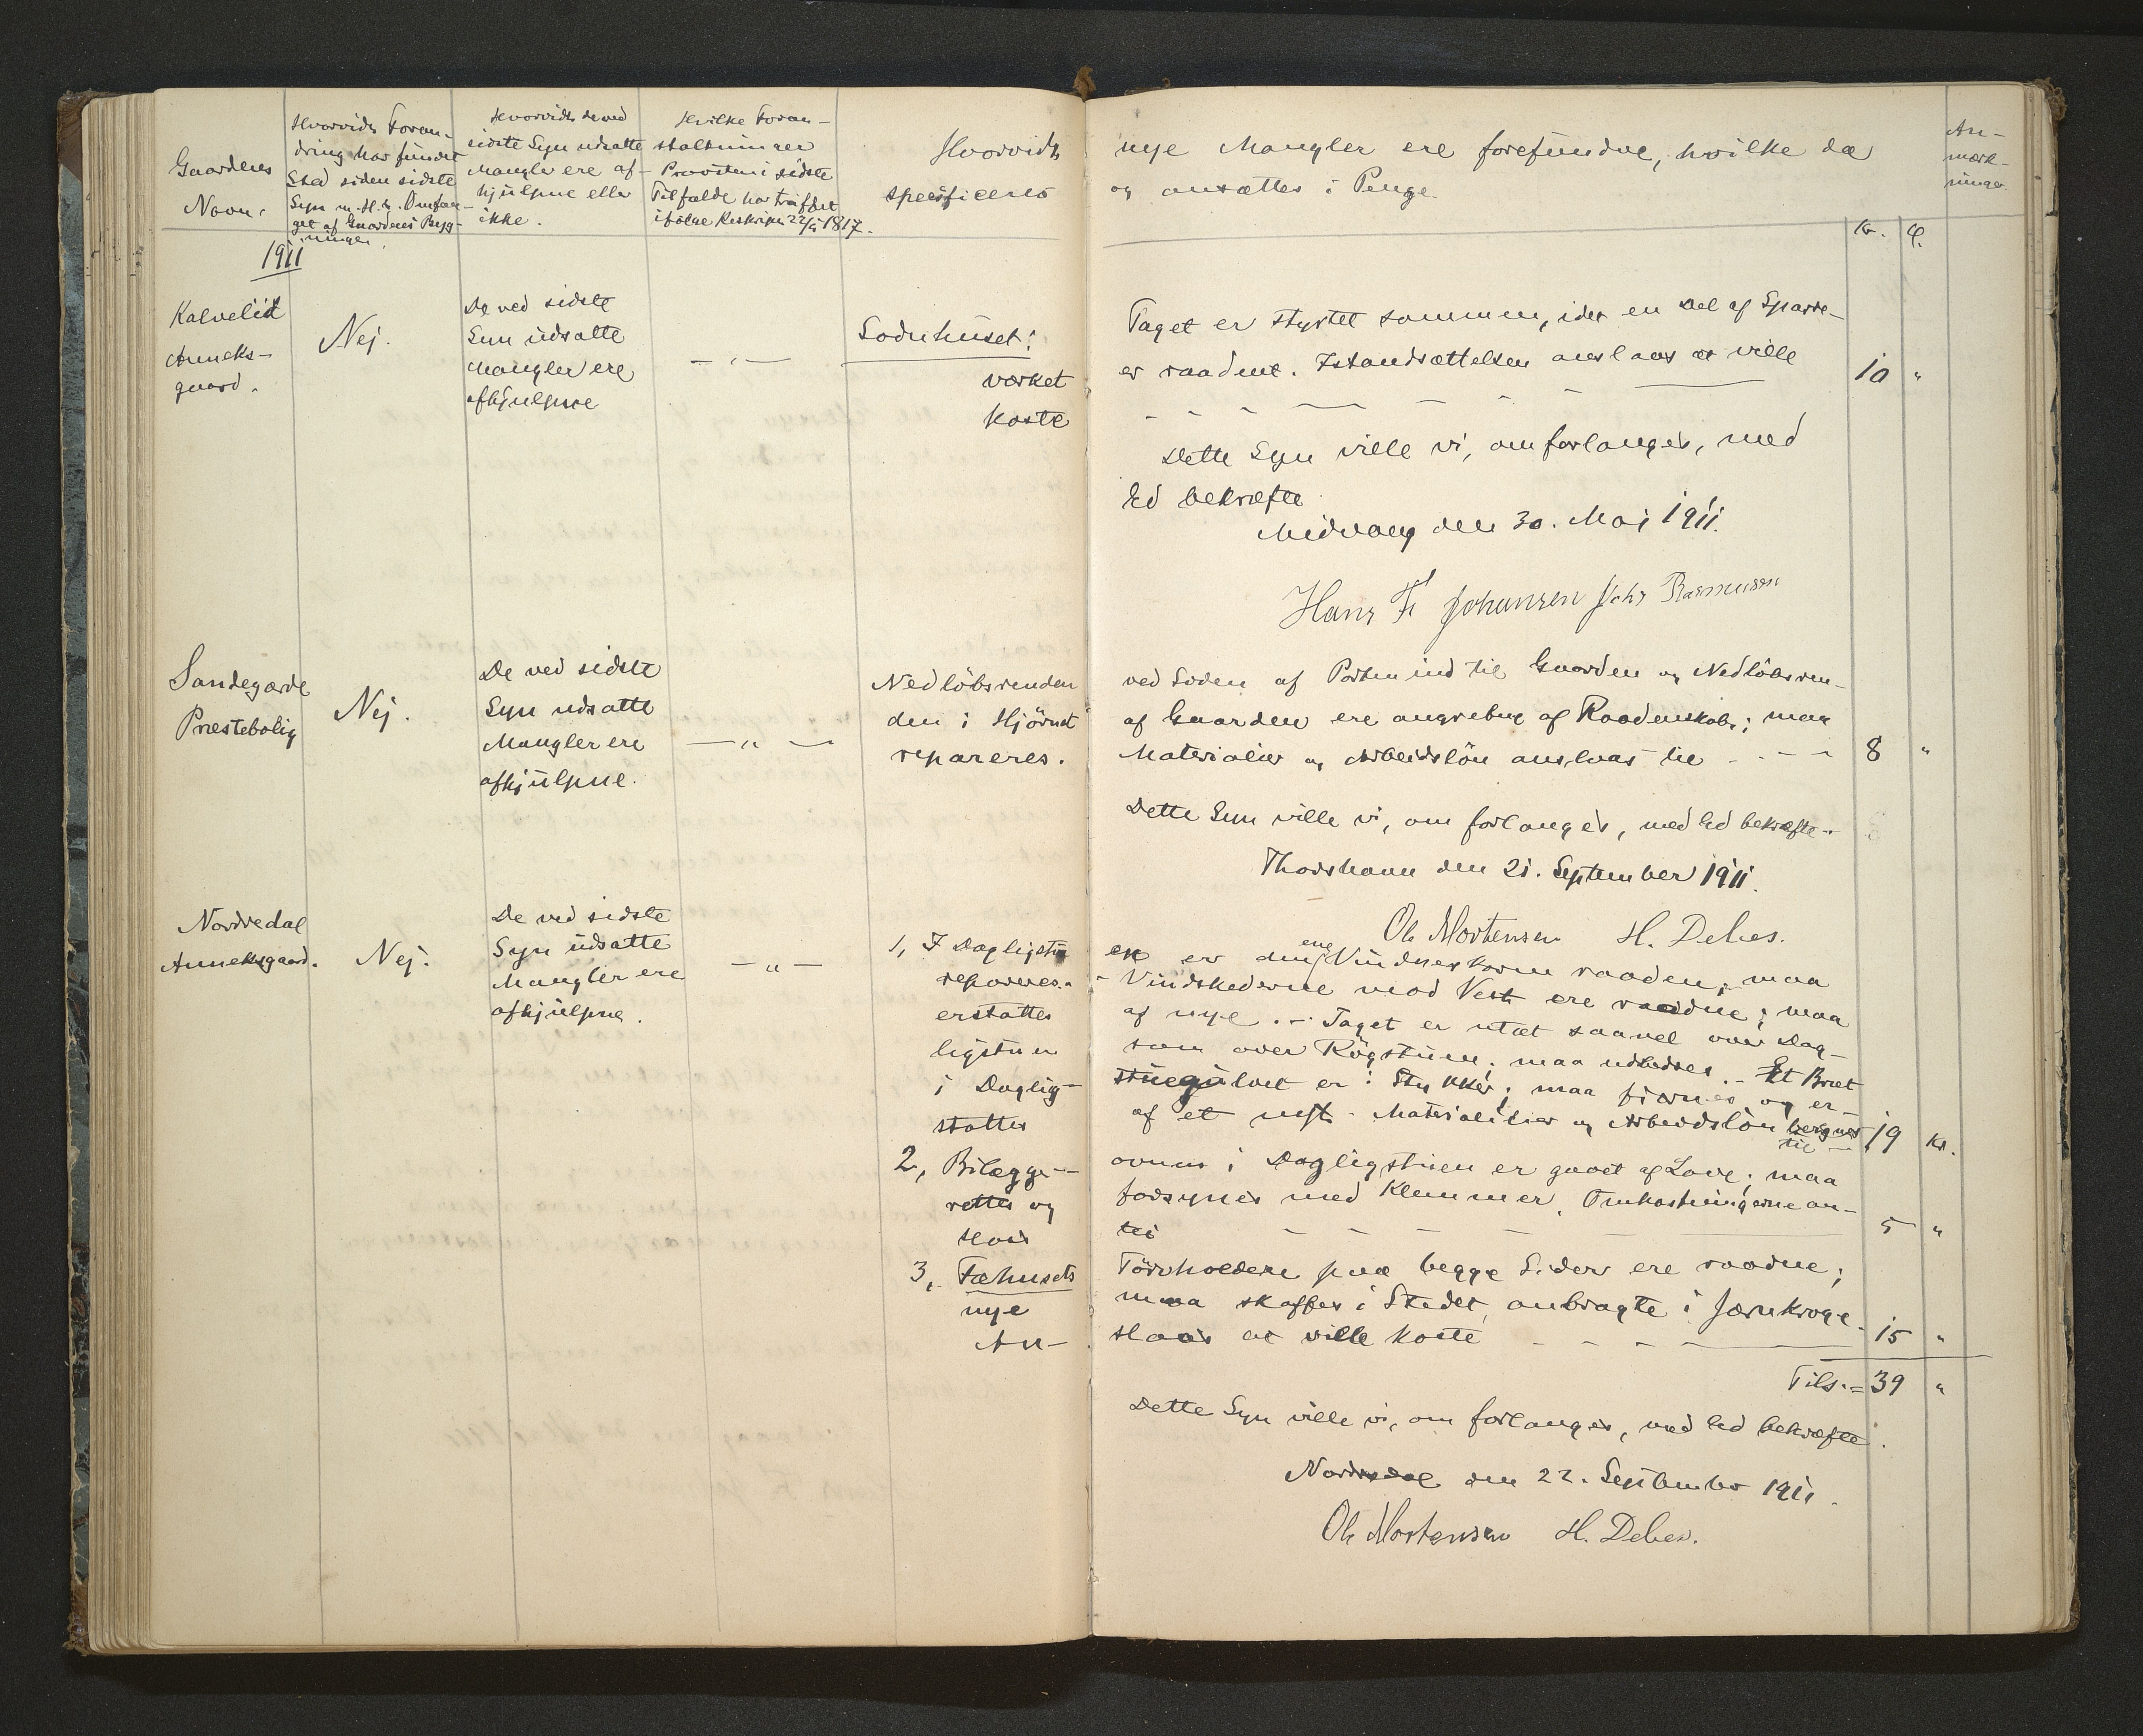 Gaardenes
Navn.
Hvorvidt Foran-
dring har fundet
Sted siden sidste
Syn m. H. t. Omfan-
get af Gaardens Byg-
ninger.
Hvorvidt de ved
sidste Syn udsatte
Mangler ere af-
hjulpne eller
ikke.
Hvilke Foran-
staltninger
Provsten i sidste
Tilfælde har truffet
ifølge Reskript 22/4 1817.
Hvorvidt nye Mangler ere forefundne, hvilke da
specificeres og ansættes i Penge.
An-
mærk-
ninger
Kr.
1911
Kalvelid
Anneks-
gaard.
Nej.
De ved sidste
Syn udsatte
Mangler ere
afhjulpne
— „ —
Sodnhuset: Taget er styrtet sammen, idet en Del af Sparre-
værket er raadent. Istandsættelsen anslaas at ville
koste 10 „
Dette Syn ville vi, om forlanges, med
Ed bekræfte
Midvaag den 30. Maj 1911.
Hans Fr Johansen Johs Rasmussen
Sandegærde
Præstebolig
Nej.
De ved sidste
Syn udsatte
Mangler ere
afhjulpne.
— „ —
Nedløbsrenden ved Siden af Porten ind til Gaarden og Nedløbsren-
den i Hjørnet af Gaarden ere angrebne af Raadenskab; maa
repareres. Materialier og Arbeidsløn anslaas til 8 „
Dette Syn ville vi, om forlanges, med Ed bekræfte.
Thorshavn den 21. September 1911.
Ole Mortensen H. Debes.
Norredal
Anneksgaard.
Nej.
De ved sidste
Syn udsatte
Mangler ere
afhjulpne.
— „ —
1, I Dagligstu en er den ene Vindueskarm raaden; maa
repareres. - Vindskederne mod Vest ere raadne; maa
erstattes af nye. - Taget er utæt saavel over Dag-
ligstuen som over Røgstuen; maa udbedres. - Et Bræt
i Daglig- stuegulvet er i Stykker; maa fjernes og er-
stattes af et nyt. Materialier og Arbeidsløn beregnes til 19 Kr.
2, Bilægge- ovnen i Dagligstuen er gaaet af Lave; maa
rettes og forsynes med Klemmer. Omkostningerne an-
slaas til 5 „
3, Fæhusets Tørvholdere paa begge Sider ere raadne;
nye maa skaffes i Stedet, anbragte i Jærnkroge.
An- slaas at ville koste 15 „
Tils. = 39 „
Dette Syn ville vi, om forlanges, med Ed bekræfte.
Norredal den 22. September 1911.
Ole Mortensen H. Debes.